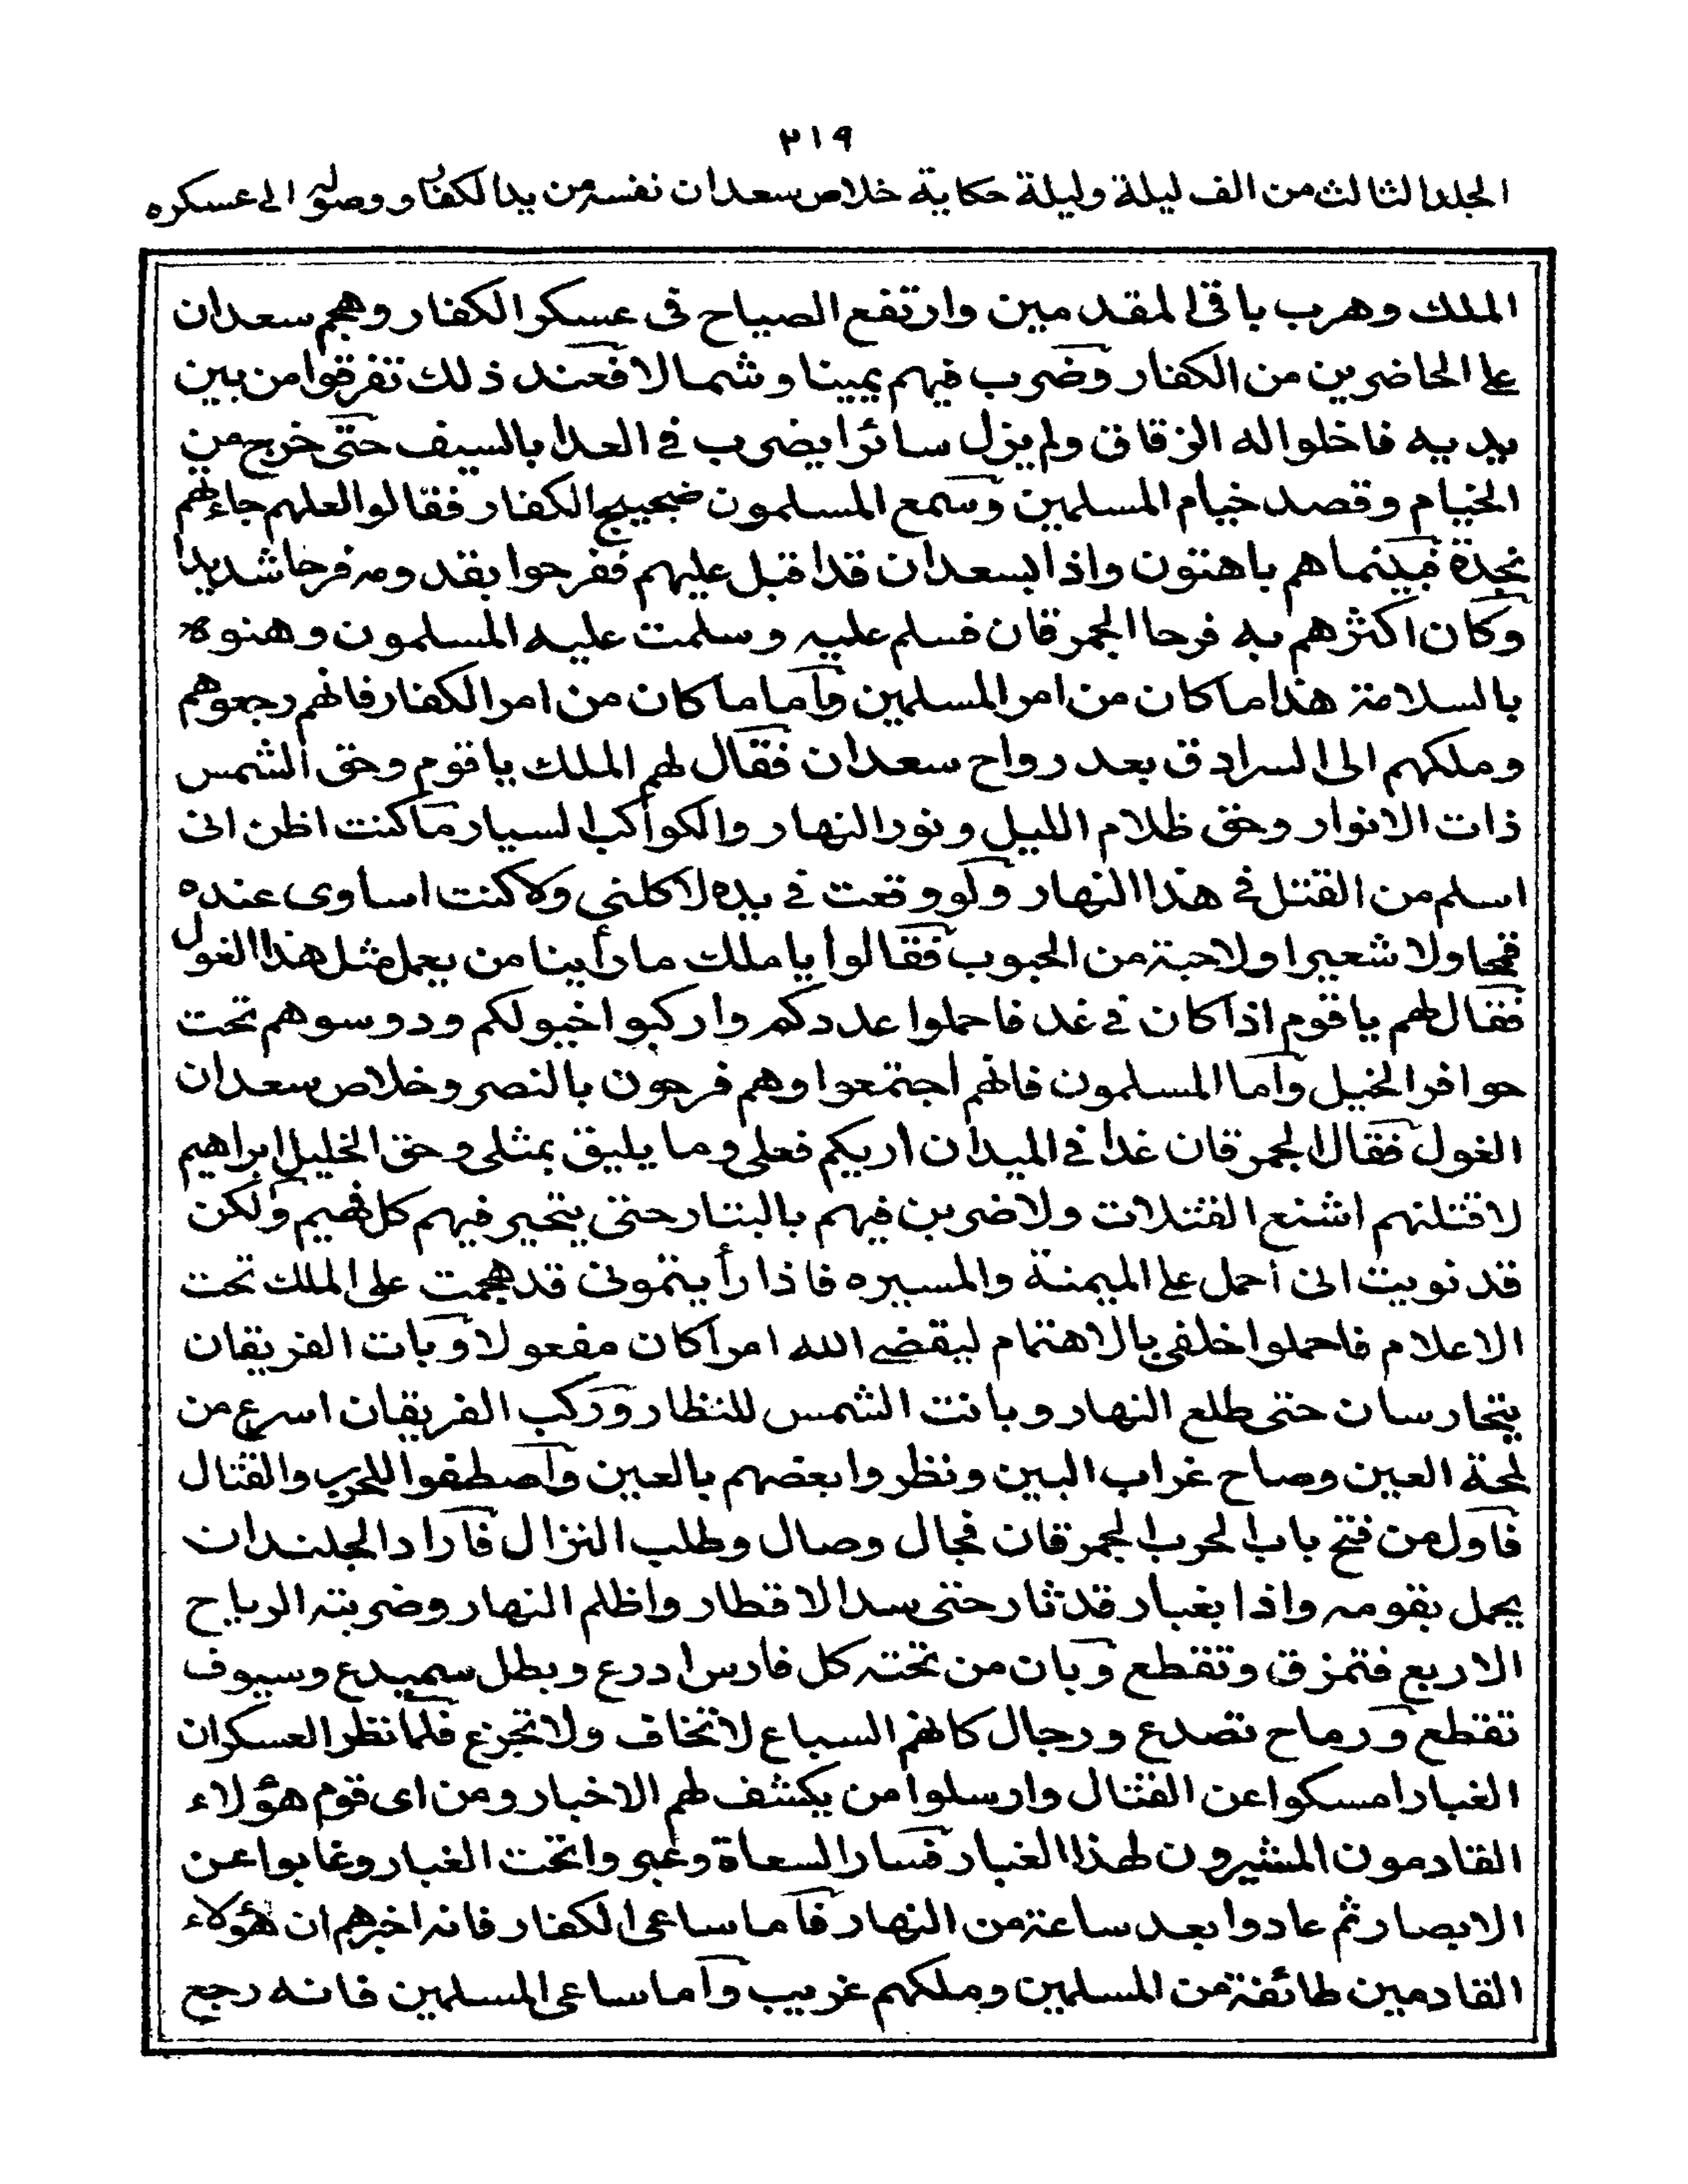 ٢١٩
المجلد الثالث من الف ليلة وليلة حكاية خلاص سعدان نفسه من يد الكفار ووصوله الى عسكره
الملك وهرب باقى المقدمين وارتفع الصياح فى عسكر الكفار وهجم سعدان
على الحاضرين من الكفار وضرب فيهم يمينا وشمالا فعند ذلك تفرقوا من بين
يديه فاخلوا له الزقاق ولم يزل سائرا يضرب فى العدا بالسيف حتى خرج من
الخيام وقصد خيام المسلمين وسمع المسلمون ضجيج الكفار فقالوا لعلهم جاءلهم
نجدة فبينماهم باهتون واذا بسعدان قد اقبل عليهم ففرحوا بقدومه فرحا شديدا
وكان اكثرهم به فرحا الجمرقان فسلم عليه وسلمت عليه المسلمون وهنوه
بالسلامة هذا ما كان من امر المسلمين وأما ما كان من امر الكفار فانهم رجعوهم
وملكهم الى السرادق بعد رواح سعدان فقال لهم الملك يا قوم وحق الشمس
ذات الانوار وحق ظلام الليل ونور النهار والكواكب السيار ما كنت اظن انى
اسلم من القتل فى هذا النهار ولو وقعت فى يده لاكلنى ولا كنت اساوى عنده
قمحا ولا شعيرا ولا حبة من الحبوب فقالوا يا ملك ما رأينا من يعمل مثل هذا الغول
فقال لهم يا قوم اذا كان فى غد فاحملوا عددكم واركبوا خيولكم ودوسوهم تحت
حوافر الخيل وأما المسلمون فانهم اجتمعوا وهم فرحون بالنصر وخلاص سعدان
الغول فقال الجمرقان غدا فى الميدان أريكم فعلى وما يليق بمثلى وحق الخليل ابراهيم
لاقتلنهم اشنع القتلات ولاضربن فيهم بالبتار حتى يتحير فيهم كل فهيم ولكن
قد نويت انى أحمل على الميمنة والمسيره فاذا رأيتمونى قد هجمت على الملك تحت
الاعلام فاحملوا خلفى بالاهتمام ليقضى الله امرا كان مفعولا وبات الفريقان
يتحارسان حتى طلع النهار وبانت الشمس للنظار وركب الفريقان اسرع من
لمحة العين وصاح غراب البين ونظروا بعضهم بالعين وأصطفوا للحرب والقتال
فأول من فتح باب الحرب الجمرقان فجال وصال وطلب النزال فأراد الجلندان
يحمل بقومه واذا بغبار قد ثار حتى سد الاقطار واظلم النهار وضربته الرياح
الاربع فتمزق وتقطع وبان من تحته كل فارس ادرع وبطل سميدع وسيوف
تقطع ورماح تصدع ورجال كانهم السباع لا تخاف ولا تجزع فلما نظر العسكران
الغبار امسكوا عن القتال وارسلوا من يكشف لهم الاخبار ومن اى قوم هؤلاء
القادمون المثيرون لهذا الغبار فسار السعاة وعبروا تحت الغبار وغابوا عن
الابصار ثم عادوا بعد ساعة من النهار فأما ساعى الكفار فانه اخبرهم ان هؤلاء
القادمين طائفة من المسلمين وملكهم غريب وأما ساعى المسلمين فانه رجع